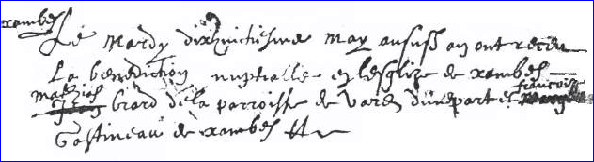 xambes
Le Mardy dixhuictiesme May ausus an ont receu
La benediction nuptialle en lesglize de xambes
Mathias
brard de la parroisse de vars dune part et francoise
Gastineau de xambes &tc